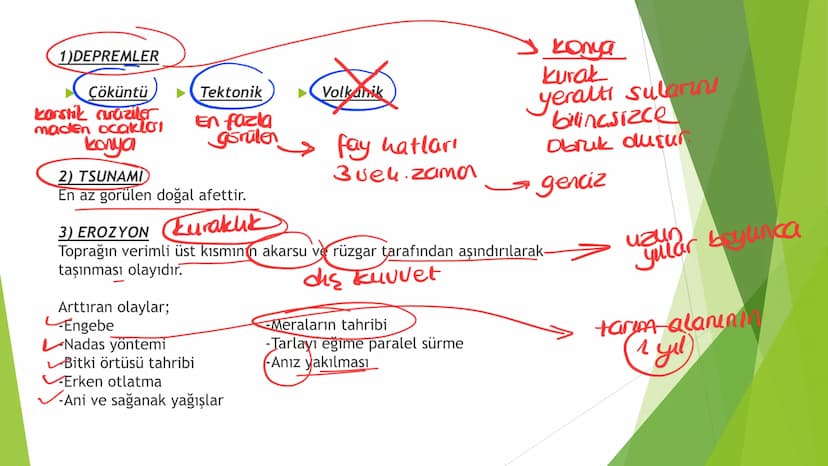 1)DEPREMLER
Çöküntü
Tektonik
Volkanik
karstik araziler
maden ocakları
konya
En fazla
görülen
fay hatları
3üch. zaman
genciz
konya
kurak
yeraltı sularını
bilinçsizce
obruk oluşur.
2) TSUNAMI
En az görülen doğal afettir.
3) EROZYON
kuraklık
Toprağın verimli üst kısmının akarsu ve rüzgar tarafından aşındırılarak
taşınması olayıdır.
dış kuvvet
uzun
yıllar boyunca
Arttıran olaylar;
-Engebe
-Nadas yöntemi
-Bitki örtüsü tahribi
-Erken otlatma
-Ani ve sağanak yağışlar
-Meraların tahribi
-Tarlayı eğime paralel sürme
-Anız yakılması
tarım alanının
1 yıl